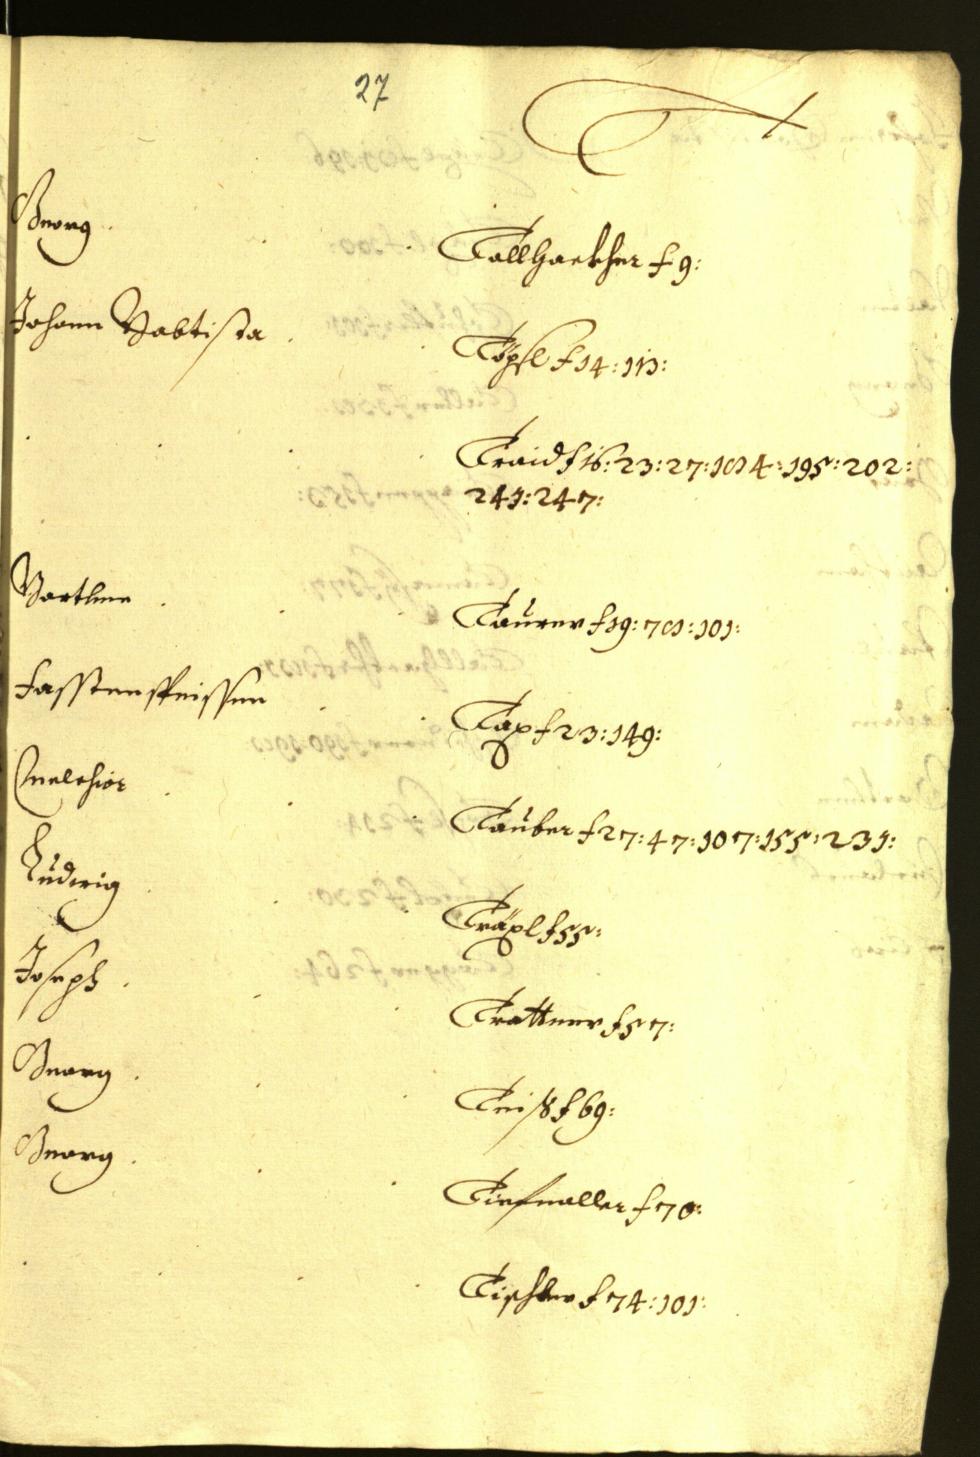 27
T
Georg
Tallhackher f 9:
Johann Babtista
Töpfl f 14: 113:
Traid f 16: 23: 27: 184: 195: 202:
241: 247:
Bartlme
Taurer f 19: 78: 101:
Fasstenspeissen
Tax f 23: 149:
Melchior
Tauber f 27: 47: 107: 155: 231:
Ludwig
Träxl f 55:
Joseph
Trattner f 57:
Georg
Teiß f 69:
Georg
Tiefnaller f 70:
Tischler f 74: 101: